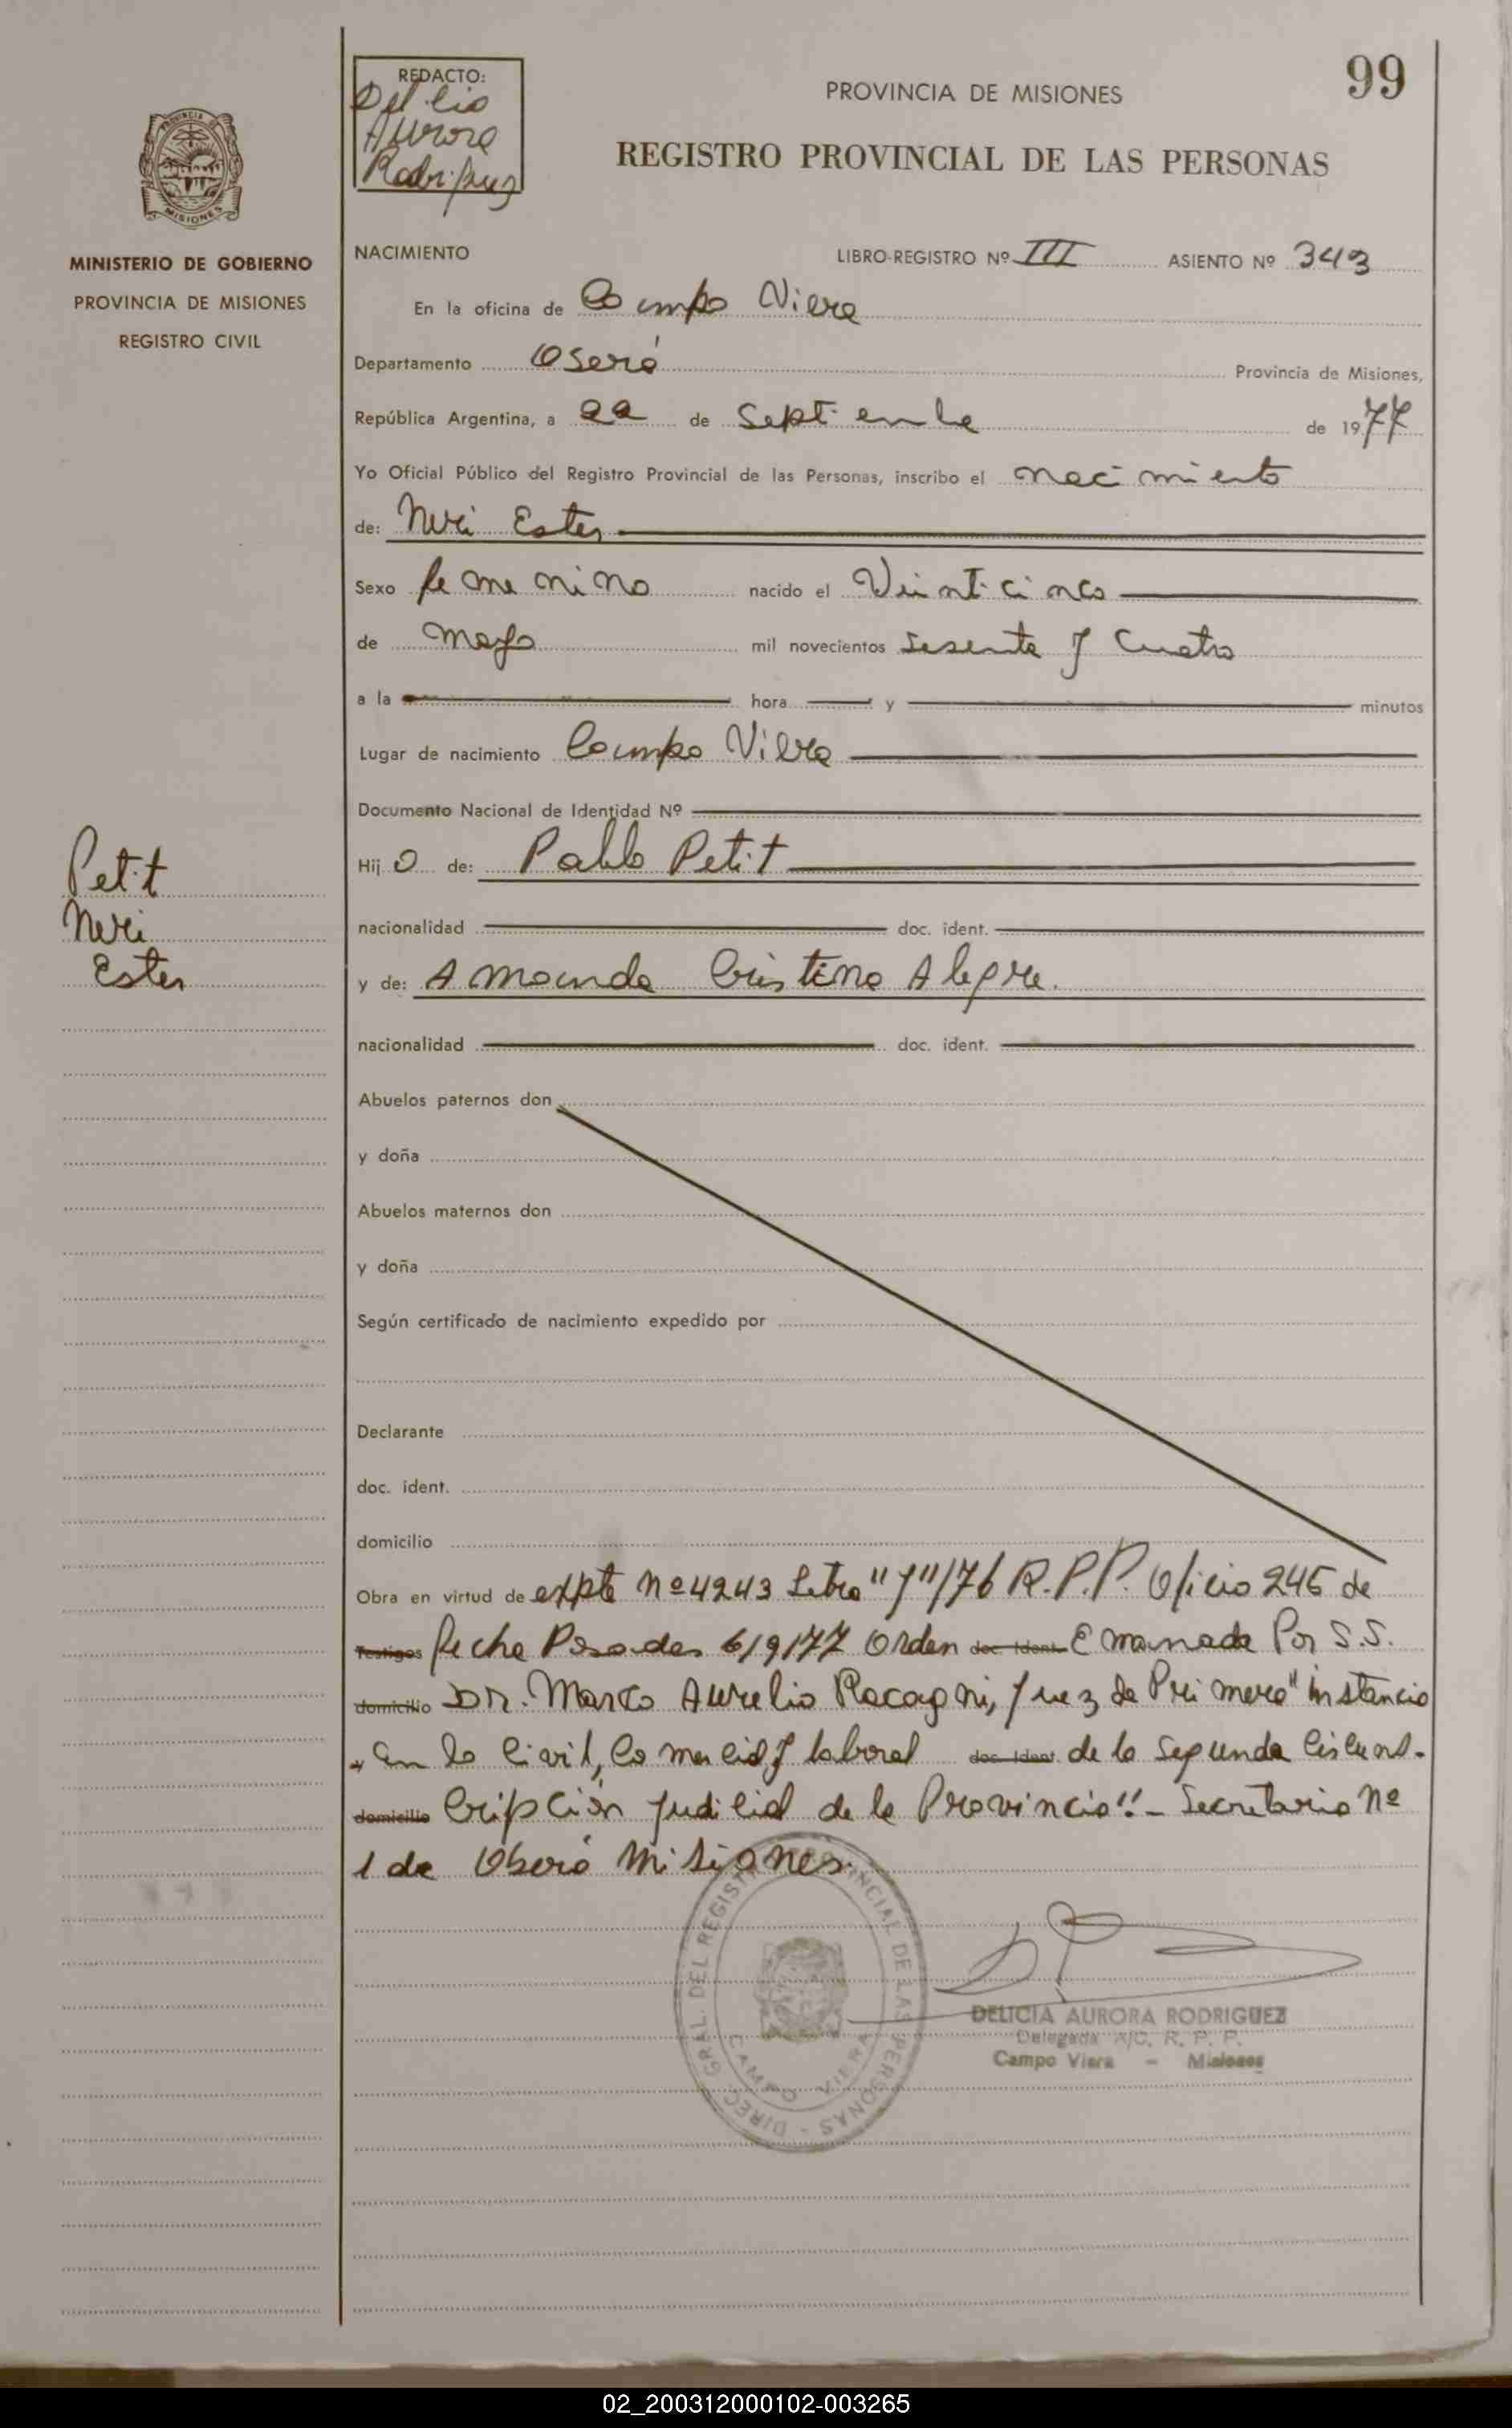 99
REDACTO:
Delicia
Aurora
Rodriguez
PROVINCIA DE MISIONES
REGISTRO PROVINCIAL DE LAS PERSONAS
PROVINCIA DE
MISIONES
MINISTERIO DE GOBIERNO
PROVINCIA DE MISIONES
REGISTRO CIVIL
NACIMIENTO LIBRO-REGISTRO Nº III ASIENTO Nº 343
En la oficina de Campo Viera
Departamento Oberá Provincia de Misiones,
República Argentina, a 22 de Septiembre de 1977
Yo Oficial Público del Registro Provincial de las Personas, inscribo el nacimiento
de: Neri Ester
Sexo femenino nacido el Veinticinco
de mayo mil novecientos Sesenta y Cuatro
a la hora y minutos
Lugar de nacimiento Campo Viera
Documento Nacional de Identidad Nº
Hijo de: Pablo Petit
nacionalidad doc. ident.
y de: Amanda Cristina Alegre.
nacionalidad doc. ident.
Petit
Neri
Ester
Abuelos paternos don
y doña
Abuelos maternos don
y doña
Según certificado de nacimiento expedido por
Declarante
doc. ident.
domicilio
Obra en virtud de expte nº 4243 Letra "J"/76 R.P.P. Oficio 245 de
Testigos fecha Posadas 6/9/77 Orden doc. ident. Emanada Por S.S.
domicilio DR. Marco Aurelio Racagni, Juez de Primera" instancia
en lo Civil, Comercial y laboral doc. ident. de la Segunda Circuns-
domicilio cripción judicial de la Provincia".- Secretaria Nº
1 de Oberá Misiones.
DIREC. GRAL. DEL REGISTRO PROVINCIAL DE LAS PERSONAS -
CAMPO VIERA
DELICIA AURORA RODRIGUEZ
Delegada A/C. R. P. P.
Campo Viera - Misiones
02_200312000102-003265